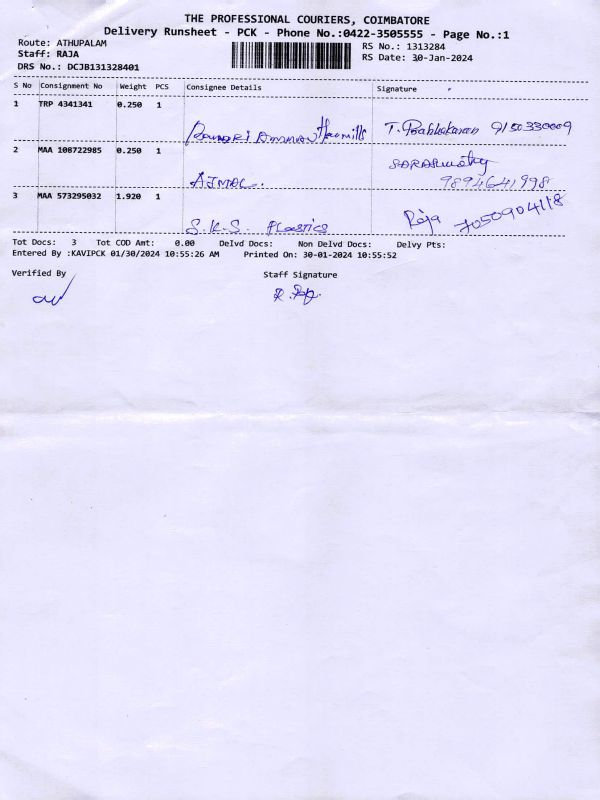 THE PROFESSIONAL COURIERS, COIMBATORE
Delivery Runsheet - PCK - Phone No.:0422-3505555 - Page No.:1
Route: ATHUPALAM
Staff: RAJA
DRS No.: DCJB131328401
RS No.: 1313284
RS Date: 30-Jan-2024
S No Consignment No Weight PCS Consignee Details Signature
1 TRP 4341341 0.250 1
AMMAN T. Prabhakaran 9150330009
2 MAA 108722985 0.250 1
AJMAL. Saraswathy
9894641998
3 MAA 573295032 1.920 1
S.K.S. Plastics Raja 7050904118
Tot Docs: 3 Tot COD Amt: 0.00 Delvd Docs: Non Delvd Docs: Delvy Pts:
Entered By :KAVIPCK 01/30/2024 10:55:26 AM Printed On: 30-01-2024 10:55:52
Verified By Staff Signature